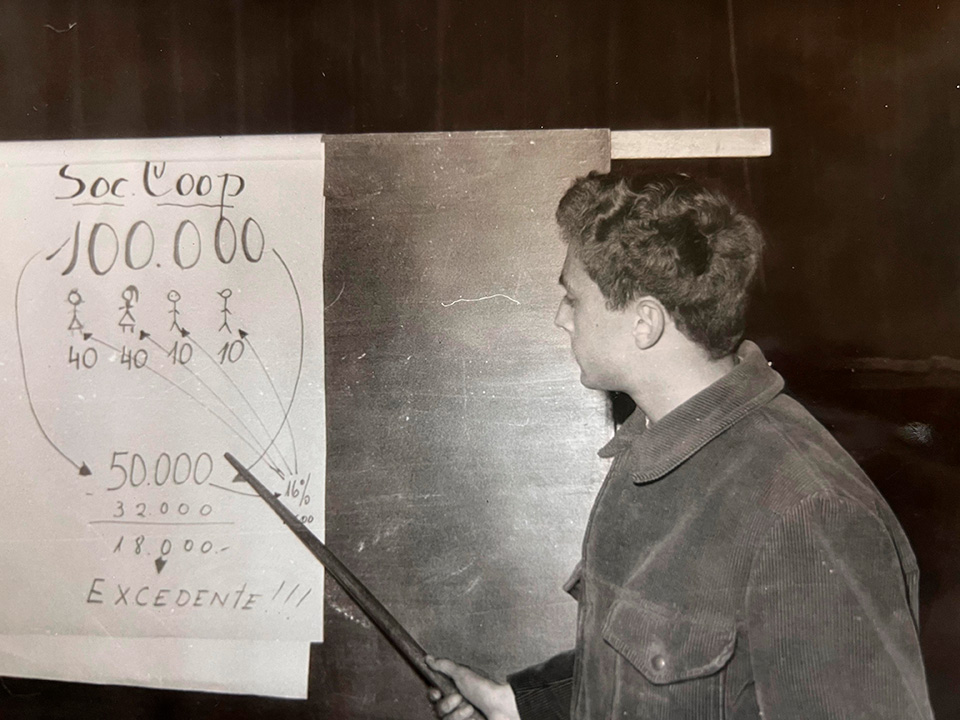 Soc. Coop
100.000
40 40 10 10
50.000
16%
32.000
18.000.-
EXCEDENTE!!!